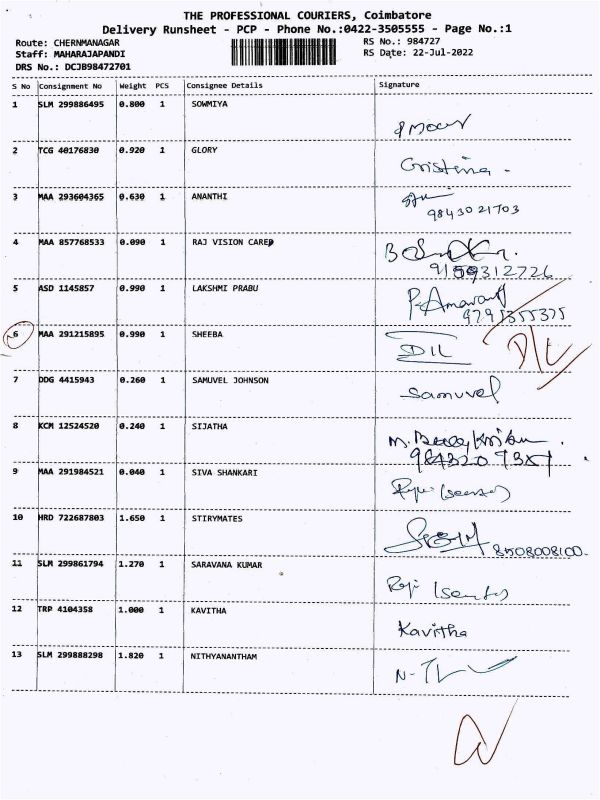 THE PROFESSIONAL COURIERS, Coimbatore
Delivery Runsheet - PCP - Phone No.:0422-3505555 - Page No.:1
Route: CHERNMANAGAR
RS No.: 984727
Staff: MAHARAJAPANDI
RS Date: 22-Jul-2022
DRS No.: DCJB98472701
S No Consignment No Weight PCS Consignee Details Signature
1 SLM 299886495 0.800 1 SOWMIYA
2 TCG 40176830 0.920 1 GLORY
Cristina -
3 MAA 293604365 0.630 1 ANANTHI
9843021703
4 MAA 857768533 0.090 1 RAJ VISION CARE
9159312726
5 ASD 1145857 0.990 1 LAKSHMI PRABU
P. Amaravathi
9795355375
6 MAA 291215895 0.990 1 SHEEBA
DIL D/L
7 DDG 4415943 0.260 1 SAMUVEL JOHNSON
Samuvel
8 KCM 12524520 0.240 1 SIJATHA
9 MAA 291984521 0.040 1 SIVA SHANKARI
10 HRD 722687803 1.650 1 STIRYMATES
8508008100
11 SLM 299861794 1.270 1 SARAVANA KUMAR
12 TRP 4104358 1.000 1 KAVITHA
Kavitha
13 SLM 299888298 1.820 1 NITHYANANTHAM